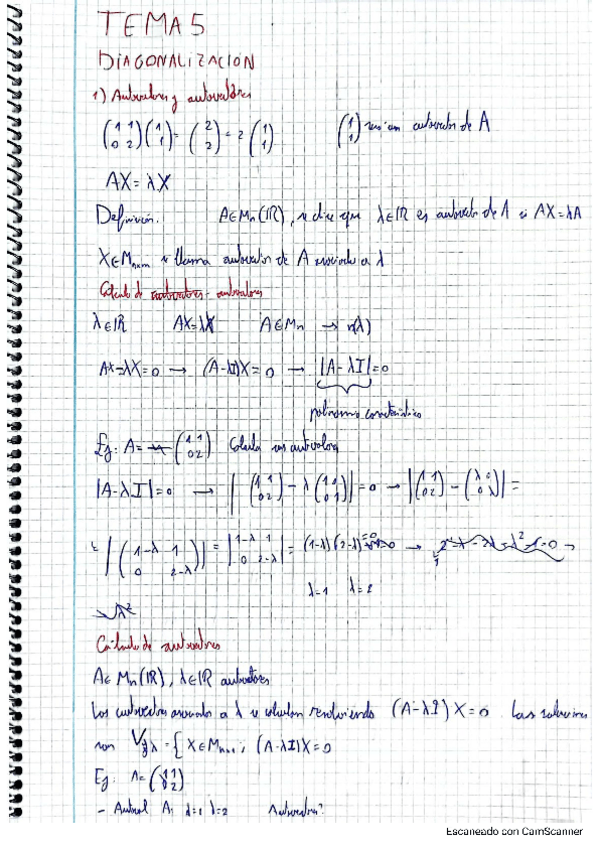 TEMA 5
DIAGONALIZACION
1) Autovalores y autovectores
(1 1; 0 2)(1; 1) = (2; 2) = 2(1; 1) (1; 1) es un autovector de A
AX = λX
Definición. A∈Mn(IR), se dice que λ∈IR es autovalor de A si AX=λA
X∈Mnxm se llama autovector de A asociado a λ
Calculo de autovalores
λ∈IR AX=λX A∈Mn → n(λ)
AX-λX=0 → (A-λI)X=0 → |A-λI|=0
polinomio característico
Ej: A= (1 1; 0 2) Calcula sus autovalores
|A-λI|=0 → |(1 1; 0 2) - λ(1 0; 0 1)|=0 → |(1 1; 0 2) - (λ 0; 0 λ)| =
= |(1-λ 1; 0 2-λ)| = |1-λ 1; 0 2-λ| = (1-λ)(2-λ)=0 →
λ=1 λ=2
Cálculo de autovectores
A∈Mn(IR), λ∈IR autovectores
Los autovectores asociados a λ se calculan resolviendo (A-λI)X=0 Las soluciones
son Vλ = { X∈Mnx1; (A-λI)X=0
Ej: A=
- Autoval A: λ=1 λ=2 Autovectores?